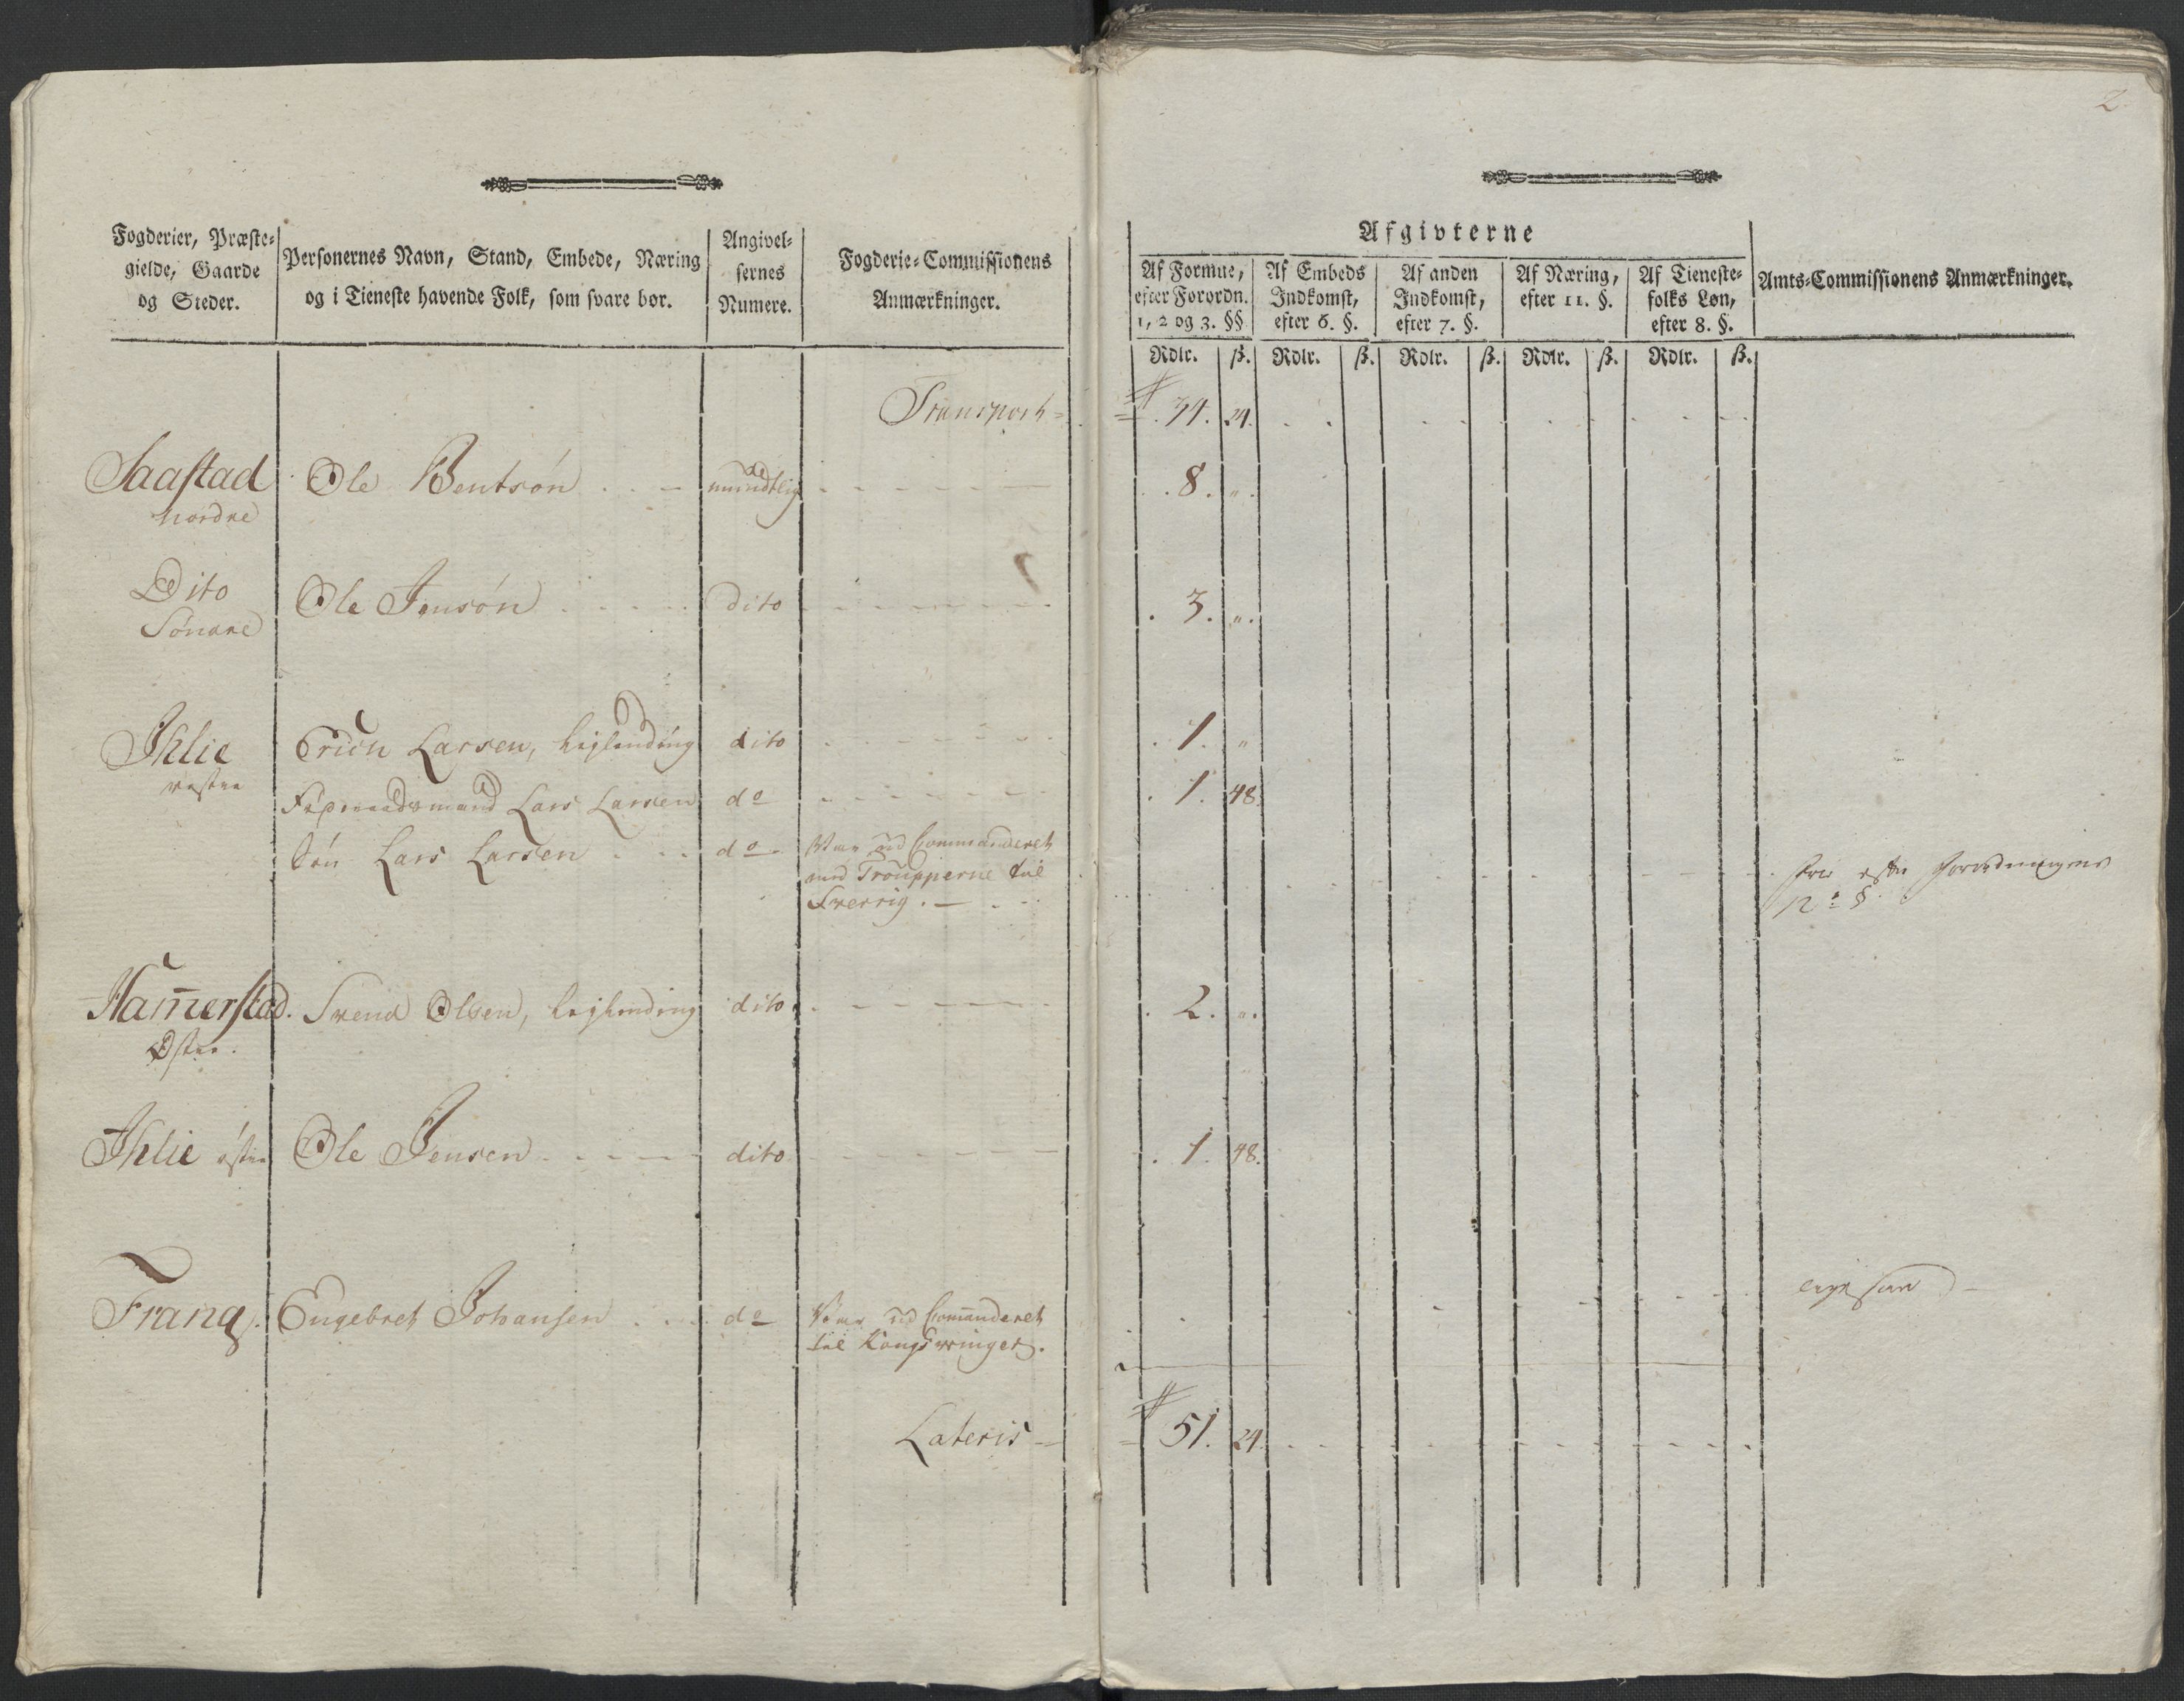 2
Fogderier, Præste-
gielde, Gaarde
og Steder.
Personernes Navn, Stand, Embede, Næring
og i Tieneste havende Folk, som svare bør.
Angivel-
sernes
Numere.
Fogderie-Commissionens
Anmærkninger.
Afgivterne
Af Formue,
efter Forordn.
1, 2 og 3. §§
Af Embeds
Indkomst,
efter 6. §.
Af anden
Indkomst,
efter 7. §.
Af Næring,
efter 11. §.
Af Tieneste-
folks Løn,
efter 8. §.
Amts-Commissionens Anmærkninger.
Rdlr. ß. Rdlr. ß. Rdlr. ß. Rdlr. ß. Rdlr. ß.
Transport 34. 24.
Saastad Ole Bentsøn mundtlig 8. "
Nordre
Dito Ole Jensøn dito 3. "
Søndre
Ihlie Erich Larsen, Leylending dito 1. "
vestre
Lars Larsen do 1. 48.
Søn Lars Larsen do Var ud Commanderet
med Troupperne til
Sverrig.
Frie efter Forordningens
12te §
Ham̄erstad. Svend Olsen, Leylending dito 2. "
Østre.
Ihlie østre Ole Jensen dito 1. 48.
Frang. Engebret Johansen do Var ud Com̄anderet
til Kongsvinger.
Lateris 51. 24.